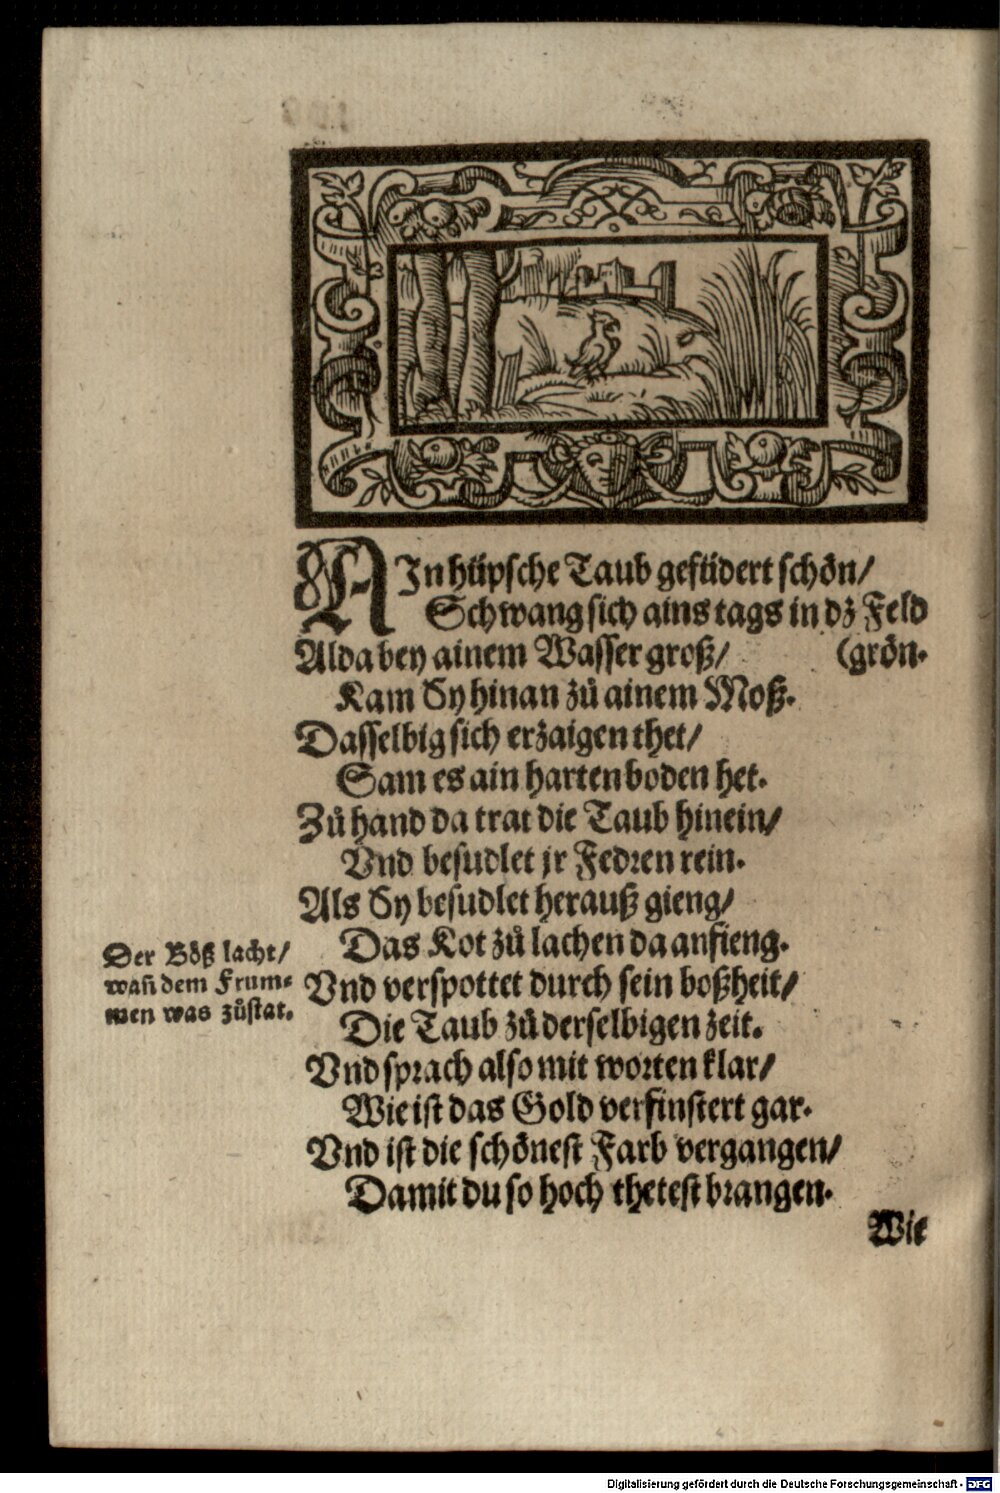 AIn hüpsche Taub gefüdert schön/
Schwang sich ains tags in dz Feld
Alda bey ainem Wasser groß/ (grön.
Kam Sy hinan zů ainem Moß.
Dasselbig sich erzaigen thet/
Sam es ain harten boden het.
Zů hand da trat die Taub hinein/
Vnd besudlet jr Fedren rein.
Als Sy besudlet herauß gieng/
Das Kot zů lachen da anfieng.
Der Böß lacht/
wañ dem Frum-
men was zůstat.
Vnd verspottet durch sein boßheit/
Die Taub zů derselbigen zeit.
Vnd sprach also mit worten klar/
Wie ist das Gold verfinstert gar.
Vnd ist die schönest Farb vergangen/
Damit du so hoch thetest brangen.
Wie
Digitalisierung gefördert durch die Deutsche Forschungsgemeinschaft - DFG